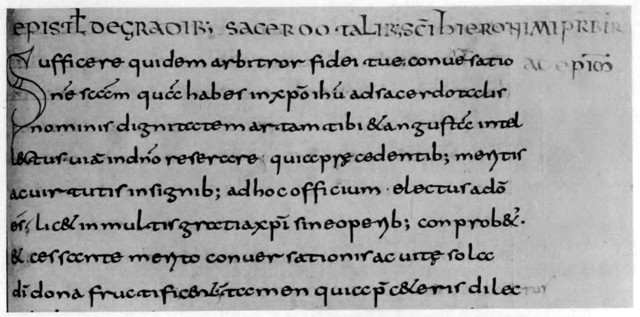 epist̄ de gradib; sacerdotalib; sc̄i hieronimi prb̄ir
Sufficere quidem arbitror fidei tuę conuersatio ac epim̄
nē sc̄am quā habes in xp̄o ih̄u ad sacerdotalis
nominis dignitatem artam tibi & angustā intel
lectus uiā in dn̄o reserare quia pręcedentib; meritis
ac uirtutis insignib; ad hoc officium · electus a dō
ēs; lic& in multis gratia xp̄i sine operib; conprob&·
& cessante merito conuersationis ac uitę sola
dī dona fructificent; tamen quia p̄ c&eris dilectus